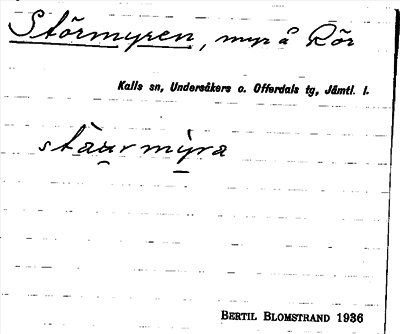 Störmyren, myr å Rör
Kalls sn, Undersåkers o. Offerdals tg, Jämtl. l.
stàu̯rmỳra
BERTIL BLOMSTRAND 1936